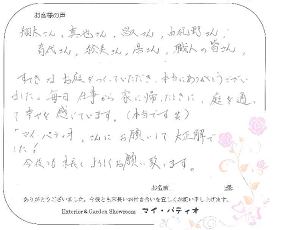 お客様の声
翔太さん、真也さん、
さん、さん、さん、職人の皆さん、
すてきなお庭をつくっていただき、本当にありがとうござい
ました。毎日仕事から家に帰ったときに、庭を通
て幸せを感じています。(本当です笑)
「マイパティオ」さんにお願いして大正解で
した!
今後も末長くよろしくお願い致します。
お名前 様
ありがとうございました。今後とも末長いお付き合いを宜しくお願い申し上げます。
Exterior & Garden Showroom マイ・パティオ